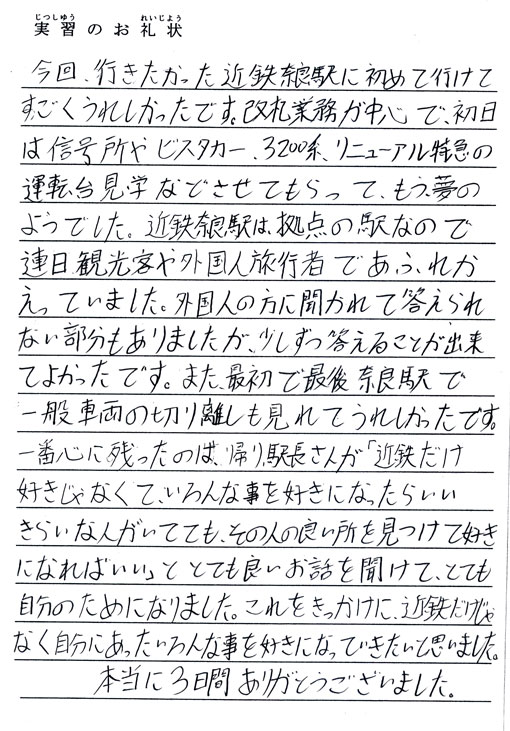 実習のお礼状
今回、行きたかった近鉄奈良駅に初めて行けて
すごくうれしかったです。改札業務が中心で、初日
は信号所やビスタカー、3200系、リニューアル特急の
運転台見学などさせてもらって、もう、夢の
ようでした。近鉄奈良駅は、拠点の駅なので
連日観光客や外国人旅行者であふれか
えっていました。外国人の方に聞かれて答えられ
ない部分もありましたが、少しずつ答えることが出来
てよかったです。また、最初で最後奈良駅で
一般車両の切り離しも見れてうれしかったです。
一番心に残ったのは、帰り、駅長さんが「近鉄だけ
好きじゃなくて、いろんな事を好きになったらいい
きらいな人がいてても、その人の良い所を見つけて好き
になればいい」ととても良いお話を聞けて、とても
自分のためになりました。これをきっかけに、近鉄だけじゃ
なく自分にあったいろんな事を好きになっていきたいと思いました。
本当に3日間ありがとうございました。